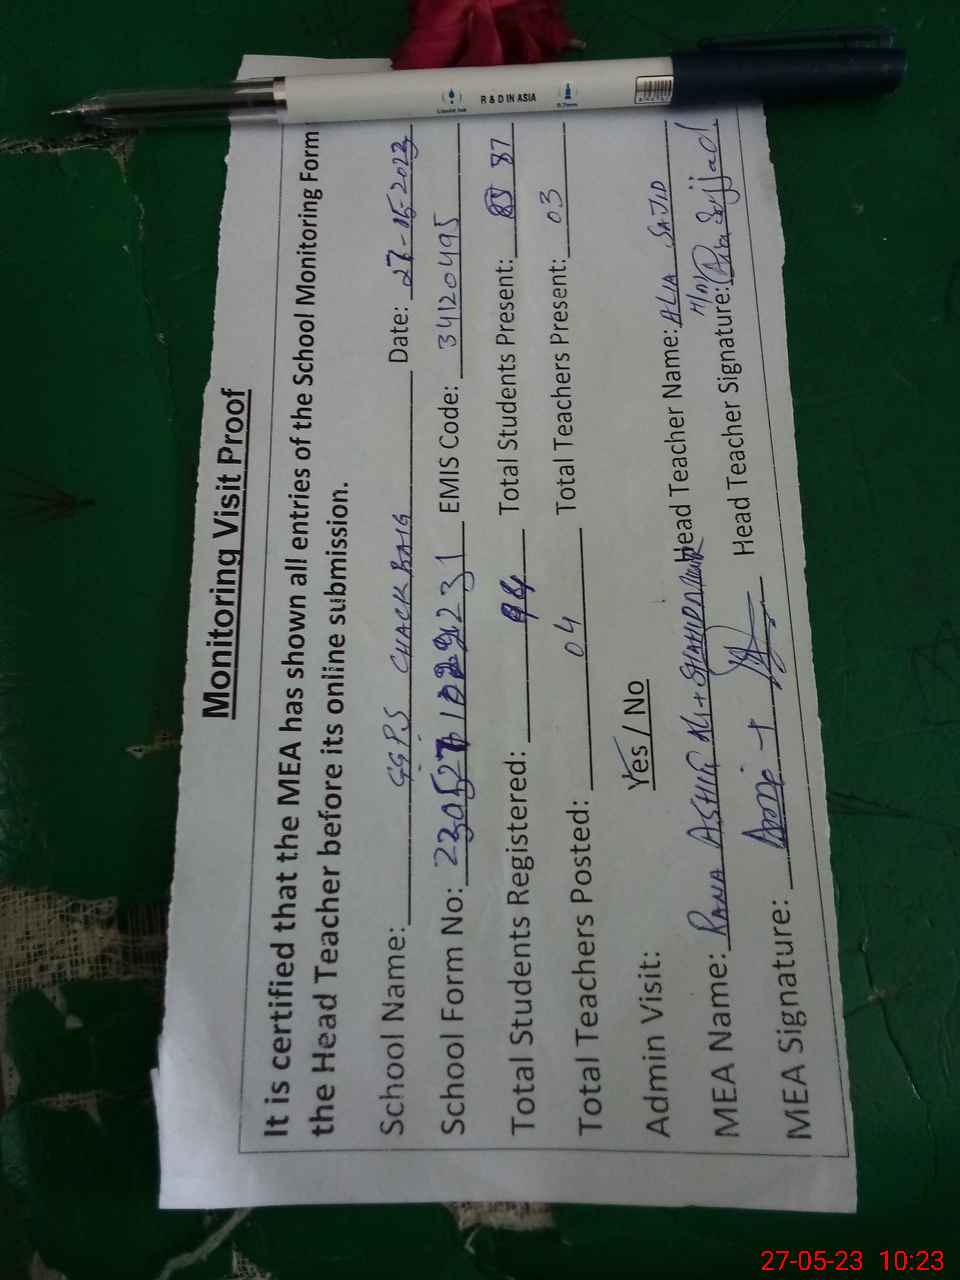 R & D IN ASIA
Monitoring Visit Proof
It is certified that the MEA has shown all entries of the School Monitoring Form
the Head Teacher before its online submission.
School Name: GGPS CHACK BAIG Date: 27-05-2023
School Form No: EMIS Code: 34120495
Total Students Registered: 94 Total Students Present: 87
Total Teachers Posted: 04 Total Teachers Present: 03
Admin Visit: Yes / No
MEA Name: RANA Head Teacher Name: ALIA SAJID
MEA Signature: Head Teacher Signature:
27-05-23 10:23